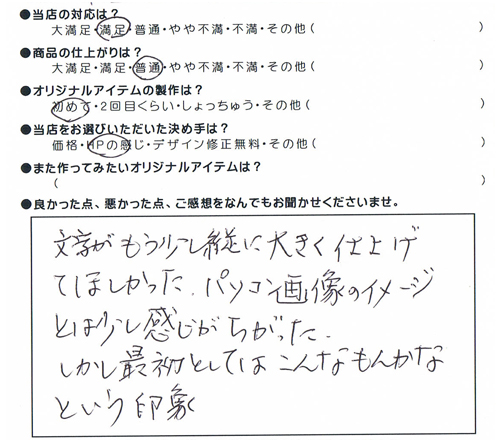 ●当店の対応は？
大満足・満足・普通・やや不満・不満・その他（　　　）
●商品の仕上がりは？
大満足・満足・普通・やや不満・不満・その他（　　　）
●オリジナルアイテムの製作は？
初めて・2回目くらい・しょっちゅう・その他（　　　）
●当店をお選びいただいた決め手は？
価格・HPの感じ・デザイン修正無料・その他（　　　）
●また作ってみたいオリジナルアイテムは？
（　　　）
●良かった点、悪かった点、ご感想をなんでもお聞かせくださいませ。
文字がもう少し縦に大きく仕上げ
てほしかった。パソコン画像のイメージ
とは少し感じがちがった。
しかし最初としてはこんなもんかな
という印象